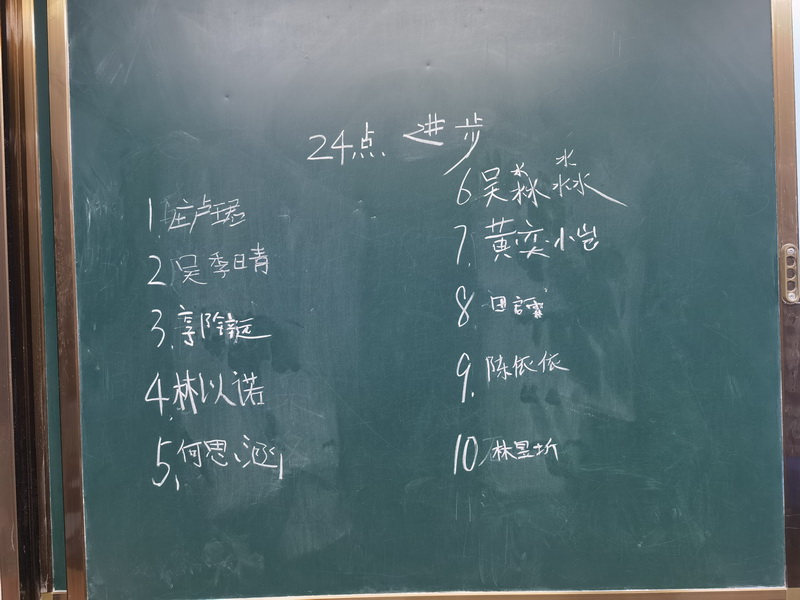 24点 进步
1 庄卢珺
2 吴季晴
3. 郭
4. 林以诺
5. 何思涵
6 吴淼淼
7. 黄奕
8 田
9. 陈依依
10 林昱圻